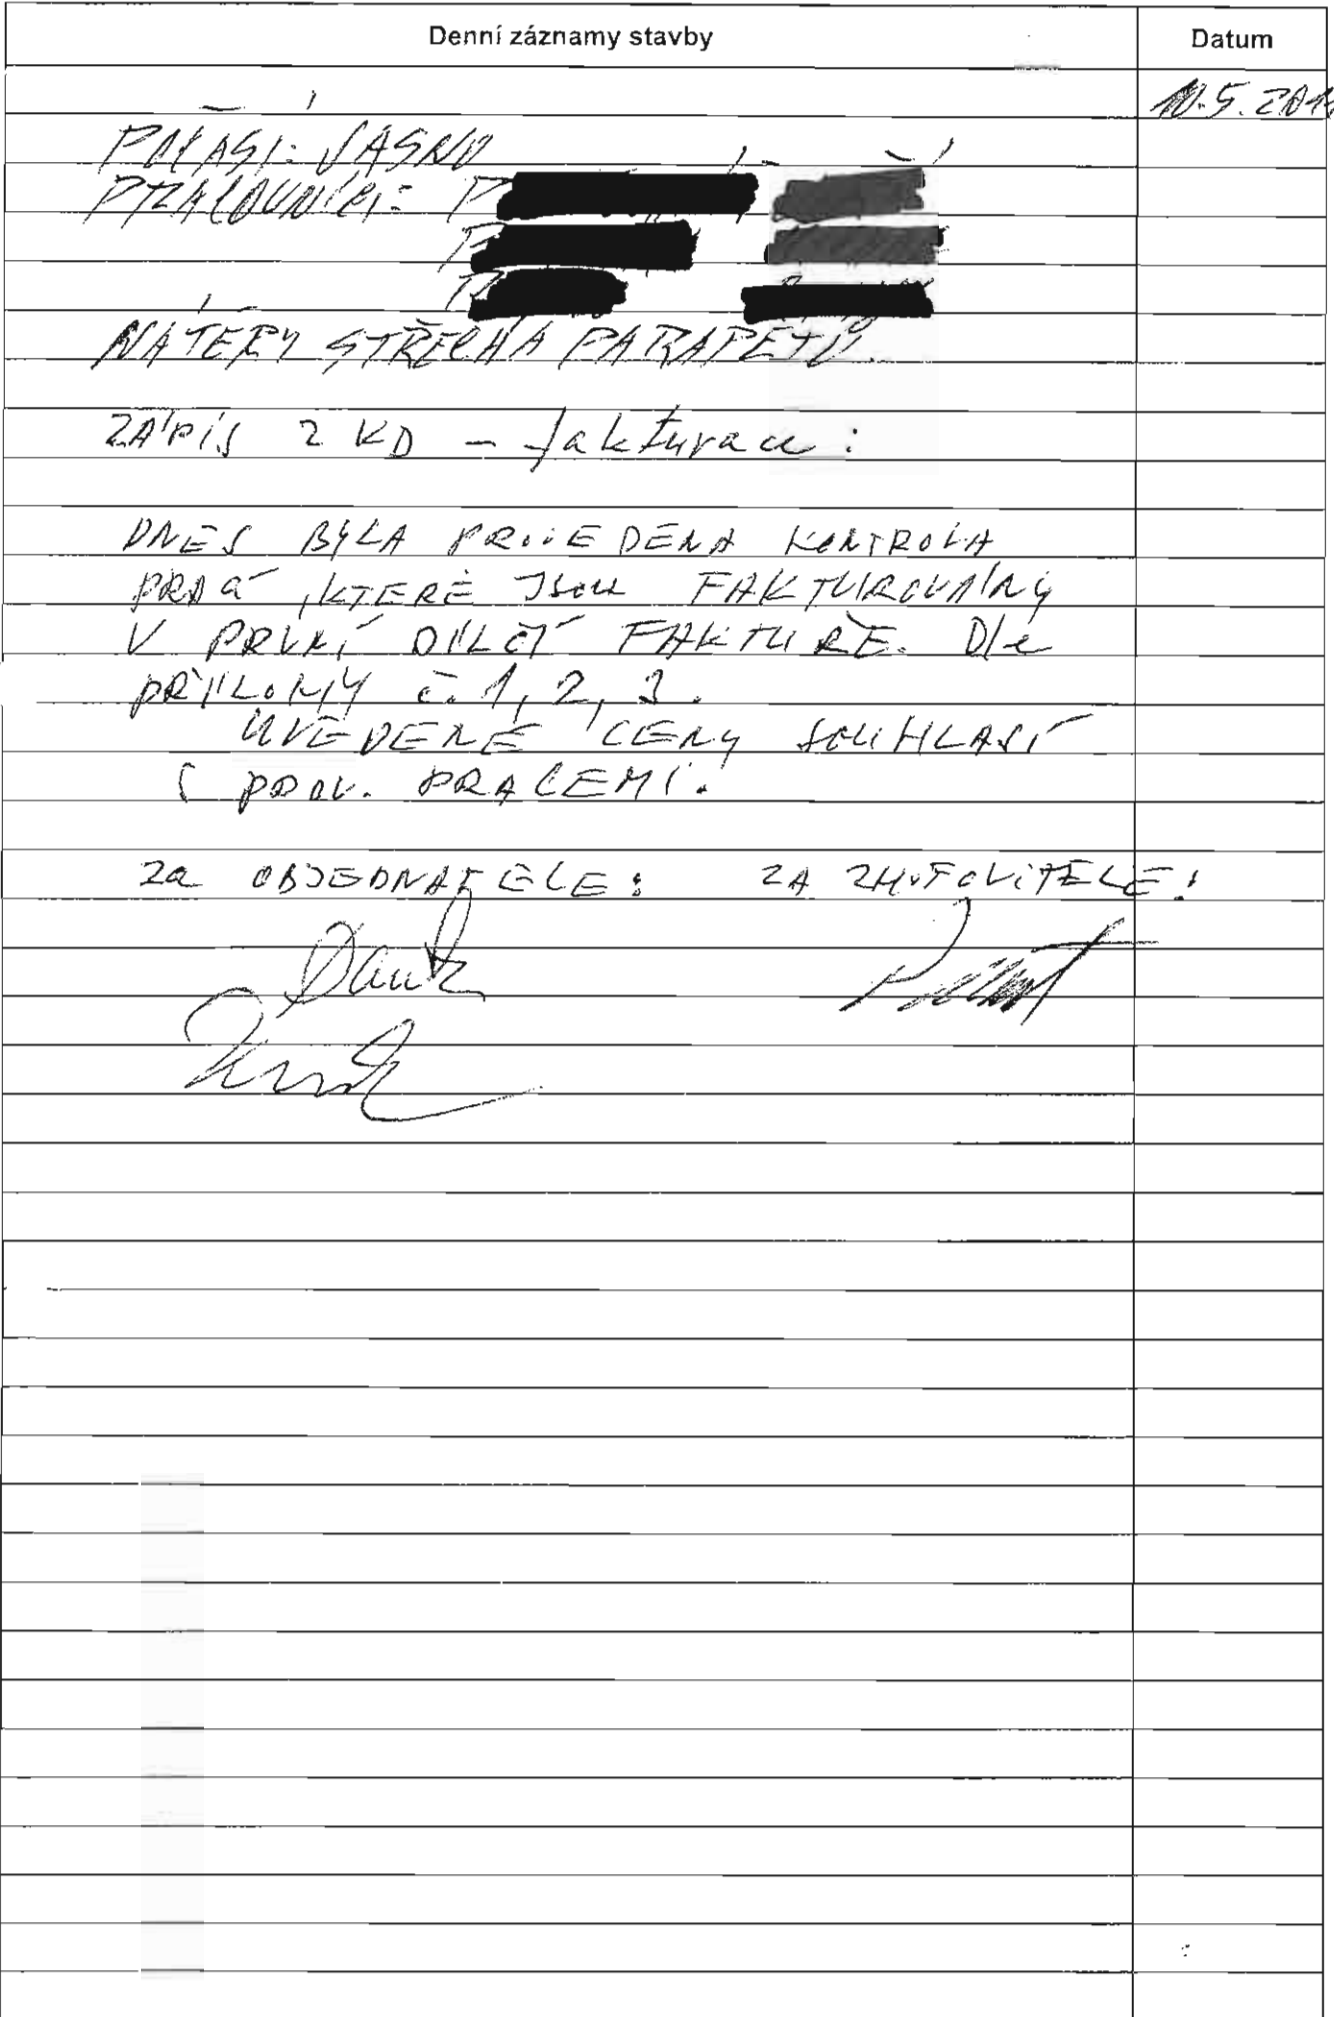 Denní záznamy stavby Datum
10.5.201
POČASÍ: JASNO
PRACOVNÍCI: P
P
P
NÁTĚRY STŘECHA PARAPETŮ.
ZÁPIS Z KD - fakturace:
DNES BYLA PROVEDENA KONTROLA
PRACÍ, KTERÉ JSOU FAKTUROVÁNY
V PRVNÍ DÍLČÍ FAKTUŘE. Dle
PŘÍLOHY č. 1, 2, 3.
UVEDENÉ CENY SOUHLASÍ
S PROV. PRACEMI.
Za OBJEDNATELE: ZA ZHOTOVITELE: